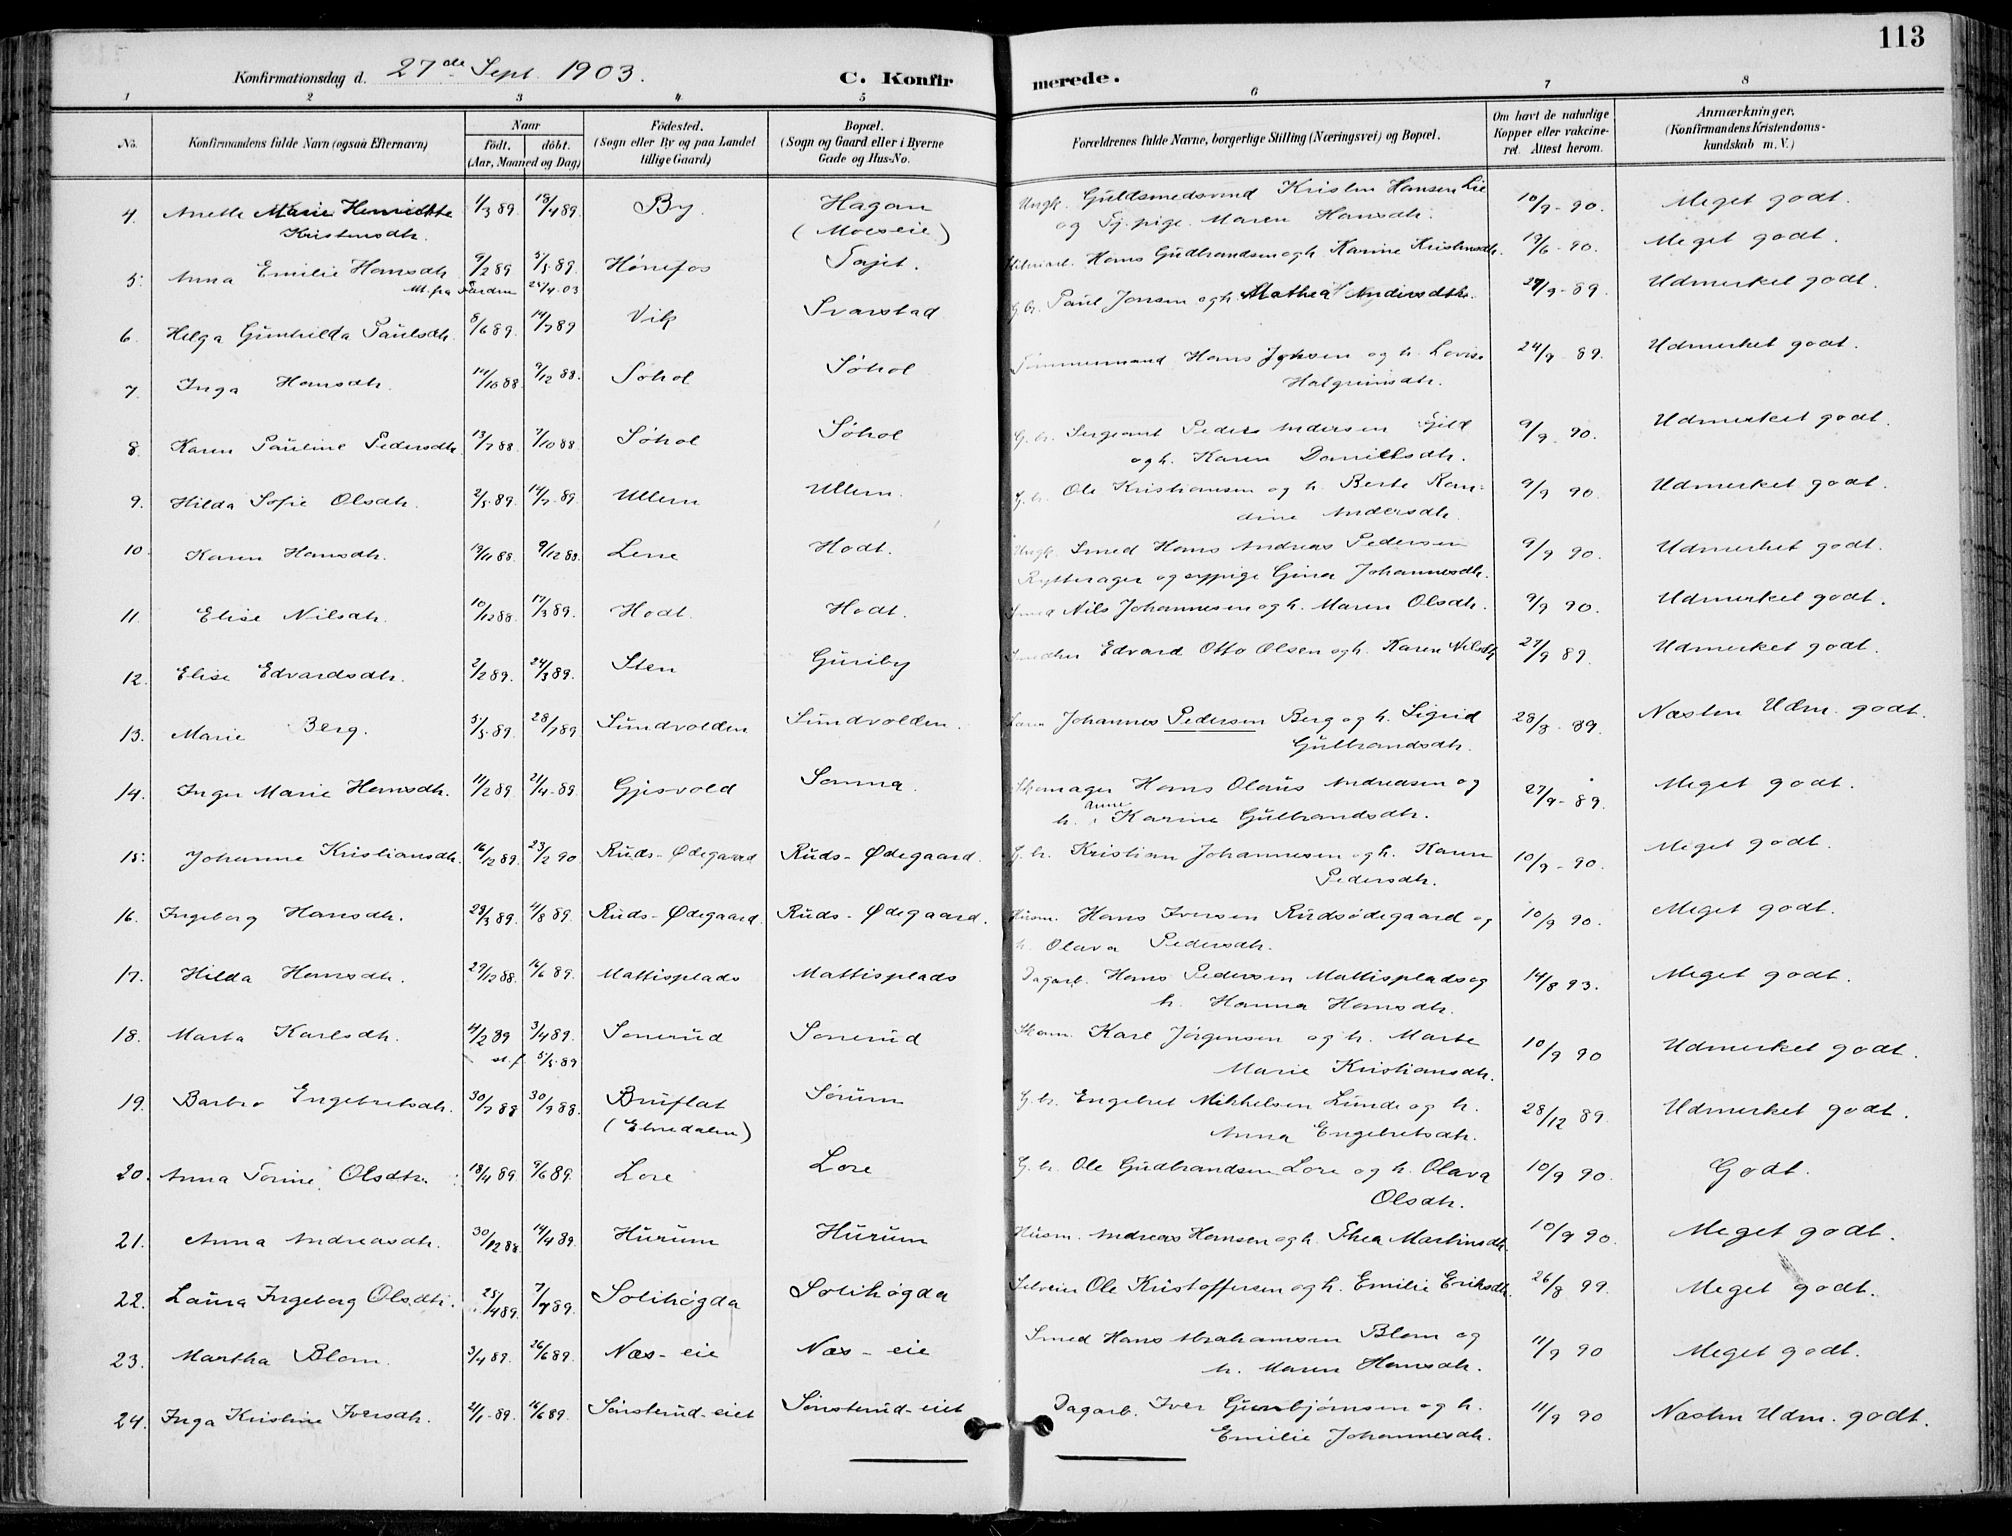 113
Konfirmationsdag d. 27de Sept. 1903. C. Konfirmerede.
1 2 3 4 5 6 7 8
No. Konfirmandens fulde Navn (ogsaa Efternavn) Naar født. døbt. (Aar, Maaned og Dag) Fødested. (Sogn eller By og paa Landet tillige Gaard) Bopæl. (Sogn og Gaard eller i Byerne Gade og Hus-No. Forældrenes fulde Navne, borgerlige Stilling (Næringsvei) og Bopæl. Om havt de naturlige Kopper eller vakcineret. Attest herom. Anmærkninger. (Konfirmandens Kristendomskundskab m. V.)
4. Anette Marie Henriette Kristensdtr. 1/3 89. 13/4 89. By. Hagan (Moeseie) Ungk. Guldsmedsvend Kristen Hansen Lie og Tj. pige Maren Hansdtr. 10/9 - 90. Meget godt.
5. Anna Emilie Hansdtr. 9/2 89 5/5 89. Hønefos Togit. Hans Gudbrandsen og h. Karine Kristensdtr. 13/6 - 90. Meget godt.
6. Helga Gunhilda Paulsdtr. 8/6 89. 14/7 89 Vik Svarstad G.br. Paul Jonsen og h. Mathea Andersdtr. 27/9 - 89. Udmerket godt.
7. Inga Hansdtr. 14/10 88 9/12 88. Søhol Søhol Tømmermand Hans Johsen og h. Lovise Halgrimsdtr. 24/9 - 89. Udmerket godt.
8. Karen Pauline Pedersdtr. 13/7 88 7/10 88 Søhol Søhol G.br. Sergeant Peder Andersen Gjeld og h. Karen Danielsdtr. 9/9. 90. Udmerket godt.
9. Hilda Sofie Olsdtr. 2/5 89. 14/7 - 89. Ullern Ullern. G.br. Ole Kristiansen og h. Berte Randine Andersdtr. 9/9 90. Udmerket godt.
10. Karen Hansdtr. 13/11 88 9/12 88. Lene Hodt. Ungk. Smed Hans Andreas Pedersen Rytterager og sypige Gina Johannesdtr. 9/9 90. Udmerket godt.
11. Elise Nilsdtr. 10/12 88. 17/3 89. Hodt. Hodt. Smed Nils Johannesen og h. Maren Olsdtr. 9/9 90. Udmerket godt.
12. Elise Edvardsdtr. 2/2 89. 24/3 89. Sten Guriby Edvard Otto Olsen og h. Karen Nilsdtr 27/9 89. Udmerket godt.
13. Marie Berg. 5/5 89. 28/7 89 Sundvolden Sundvolden. Johannes Pedersen Berg og h. Sigrid Gulbrandsdtr. 28/8 - 89. Næsten Udm. godt.
14. Inger Marie Hansdtr. 11/2 89. 21/4 - 89. Gjesvold Sonna. Skomager Hans Olaus Andreasen og h. Anne Karine Gulbrandsdtr. 27/9 - 89. Meget godt.
15. Johanne Kristiansdtr. 16/12 89. 23/2 90 Ruds-Ødegaard Ruds-Ødegaard. G.br. Kristian Johannesen og h. Karen Pedersdtr. 10/9 - 90. Meget godt.
16. Ingeborg Hansdtr. 29/3 89. 4/8 89. Ruds-Ødegaard. Ruds-Ødegaard. Husm. Hans Iversen Rudsødegaard og h. Olava Pedersdtr. 10/9 90. Meget godt.
17. Hilda Hansdtr. 29/12 88. 16/6 89. Mattisplads Mattisplads Dagarb. Hans Pedersen Mattisplads og h. Hanna Hansdtr. 14/8 93. Meget godt.
18. Marta Karlsdtr. 4/2 89 3/4 89. st. f. 5/5 89 Sonerud Sonerud Skom. Karl Jørgensen og h. Marte Marie Kristiansdtr. 10/9 90 Udmerket godt.
19. Barbro Engebretsdtr. 30/7 88 30/9 88. Bruflat (Etnedalen) Sørum G.br. Engebret Mikkelsen Lunde og h. Anna Engebretsdtr. 28/12 89. Udmerket godt.
20. Anna Torine Olsdtr. 18/4 89. 9/6 89. Lore Lore G.br. Ole Gudbrandsen Lore og h. Olava Olsdtr. 10/9 90. Godt.
21. Anna Andreasdtr. 30/12 88. 14/4 89. Hurum Hurum Husm. Andreas Hansen og h. Thea Martinsdtr. 10/9 90. Meget godt.
22. Laura Ingeborg Olsdtr. 25/4 89. 7/7 89. Solihøgda Solihøgda Selveier Ole Kristoffersen og h. Emilie Eriksdtr. 26/8 99. Meget godt.
23. Martha Blom. 3/4 89. 26/6 89. Næs-eie Næs-eie Smed Hans Abrahamsen Blom og h. Maren Hansdtr. 11/9 90 Meget godt.
24. Inga Kristine Iversdtr. 21/1 - 89. 16/6 89. Sønsterud-eiet Sønsterud-eiet Dagarb. Iver Gunbjørnsen og h. Emilie Johannesdtr. 11/9 90 Næsten Udm. godt.